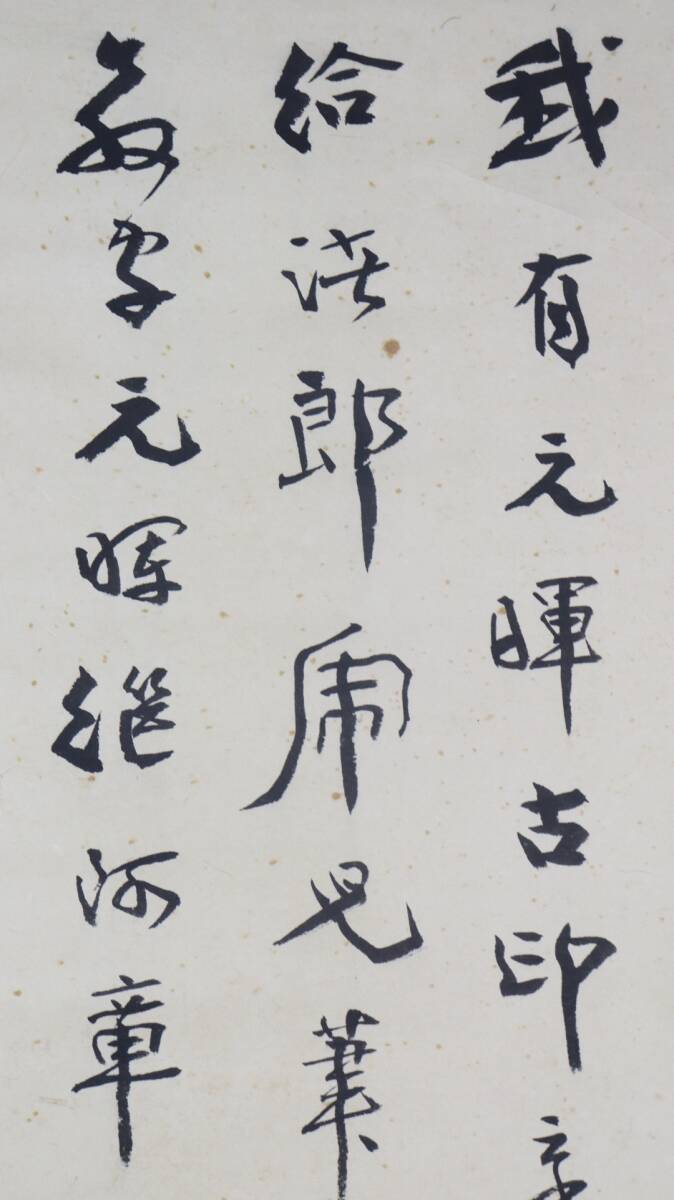 我有元暉古印
給諸郎虎兒筆
教字元暉繼阿章